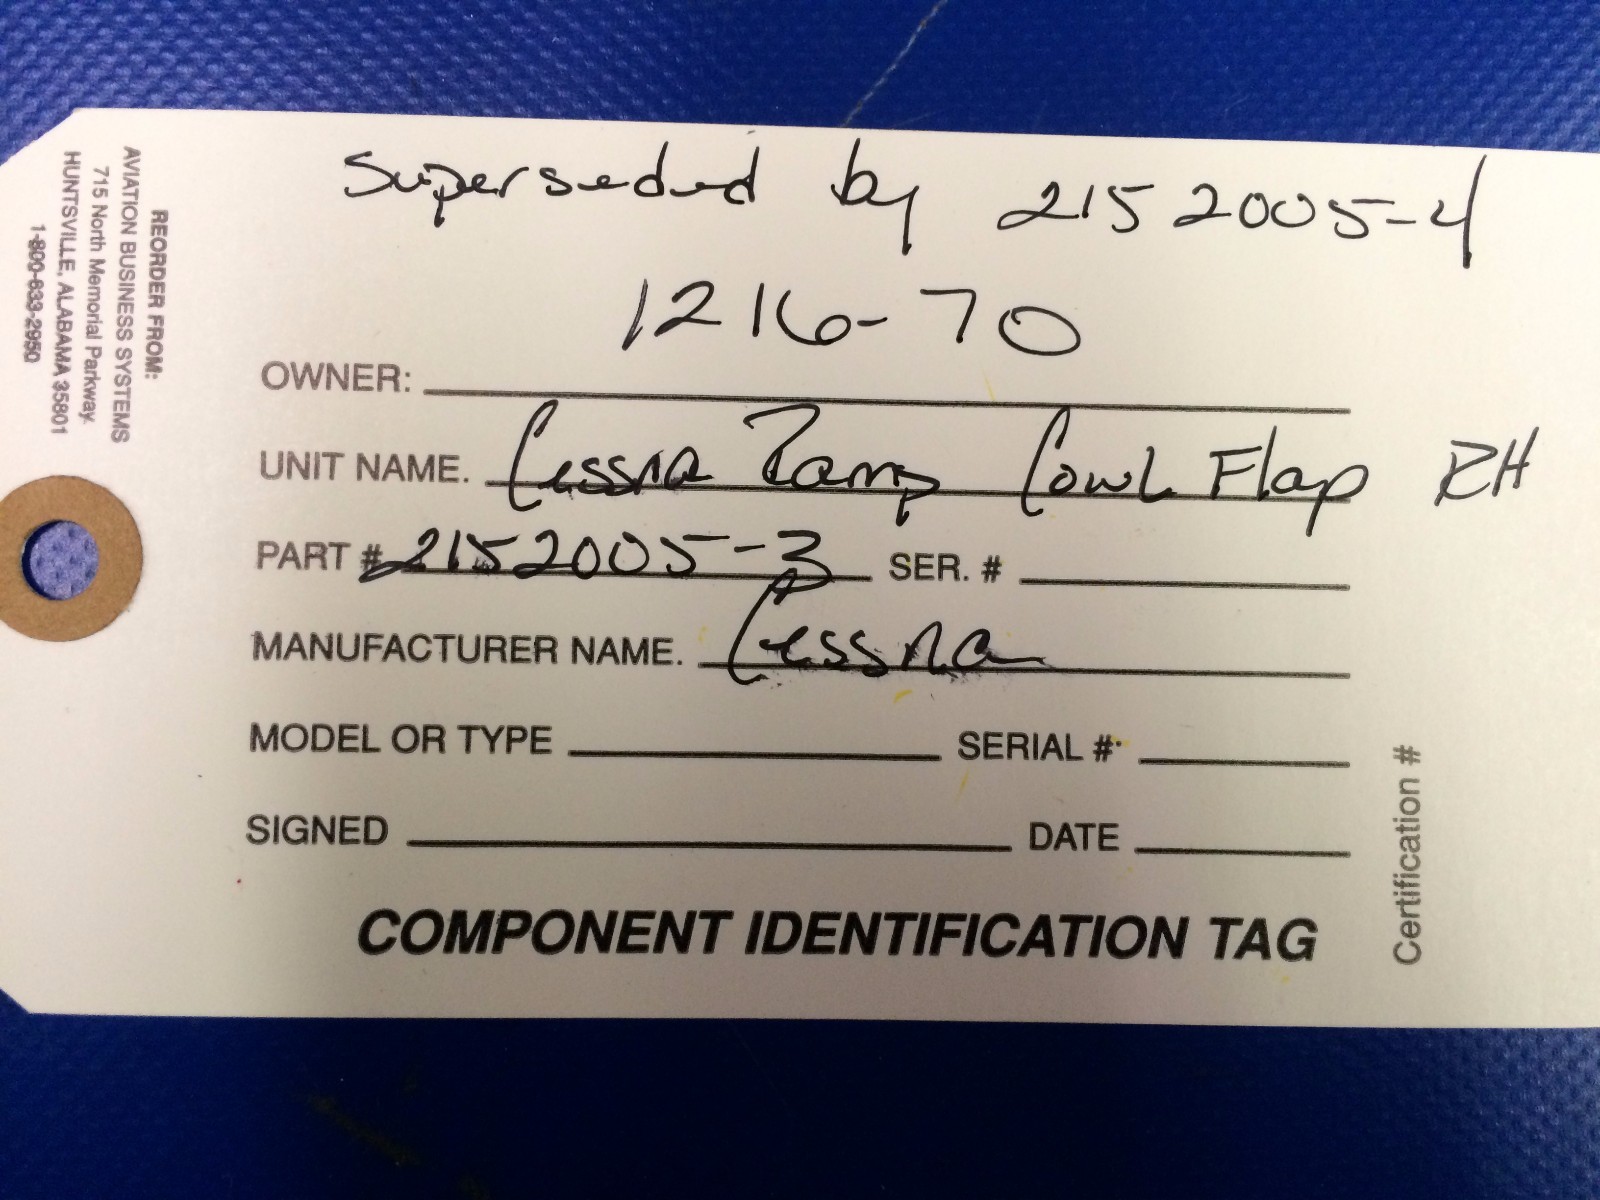 Superseded by 2152005-4
1216-70
OWNER:
UNIT NAME. Cessna Ramp Cowl Flap RH
PART # 2152005-3 SER. #
MANUFACTURER NAME. Cessna
MODEL OR TYPE SERIAL #
SIGNED DATE
COMPONENT IDENTIFICATION TAG
Certification #
REORDER FROM:
AVIATION BUSINESS SYSTEMS
715 North Memorial Parkway
HUNTSVILLE, ALABAMA 35801
1-800-633-2950